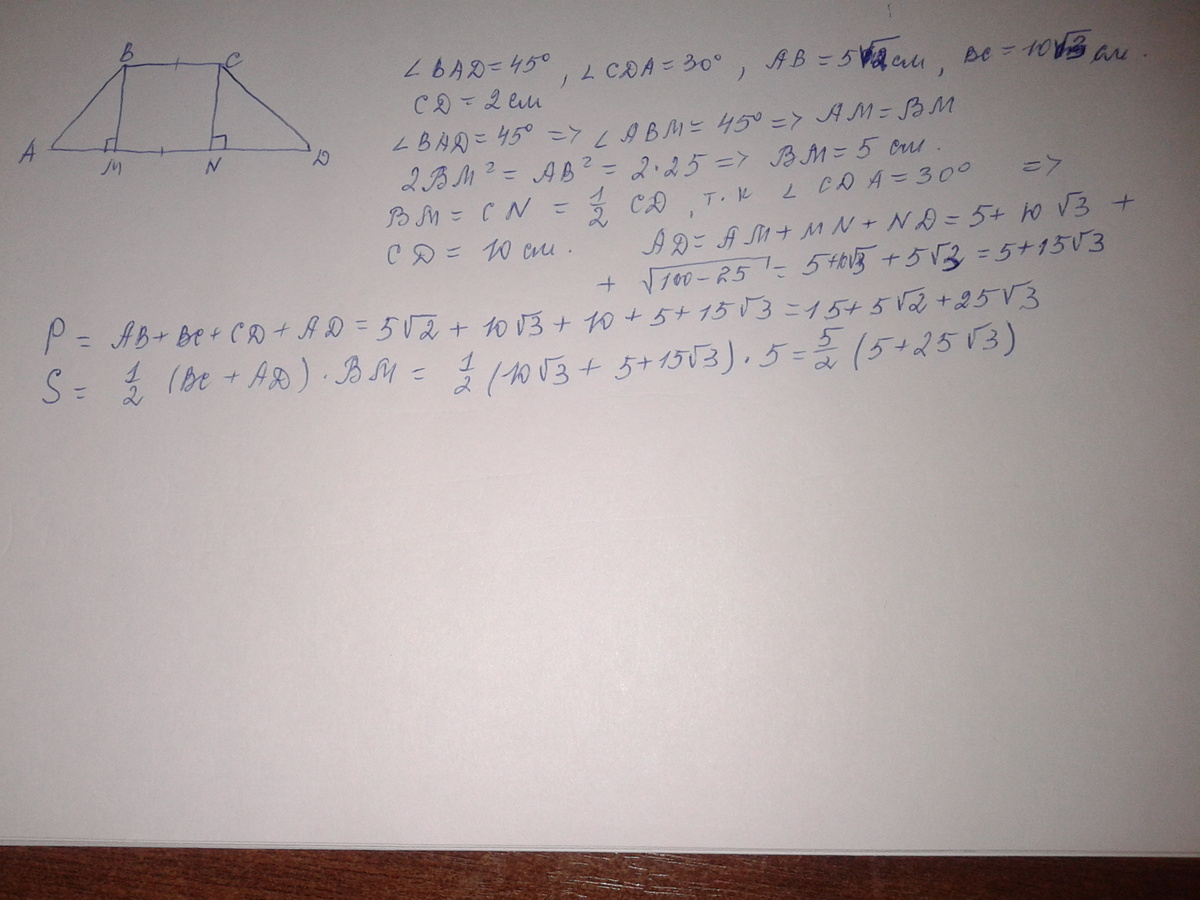 B C
A M N D
∠BAD=45°, ∠CDA=30°, AB=5√2 см, BC=10√3 см.
CD=2см
∠BAD=45° => ∠ABM=45° => AM=BM
2BM²=AB²=2·25 => BM=5 см.
BM=CN=1/2 CD, т.к ∠CDA=30° =>
CD=10 см. AD=AM+MN+ND=5+10√3 +
+ √100-25 = 5+10√3+5√3=5+15√3
P= AB+BC+CD+AD=5√2+10√3+10+5+15√3=15+5√2+25√3
S= 1/2 (BC+AD)·BM= 1/2 (10√3+5+15√3)·5=5/2 (5+25√3)